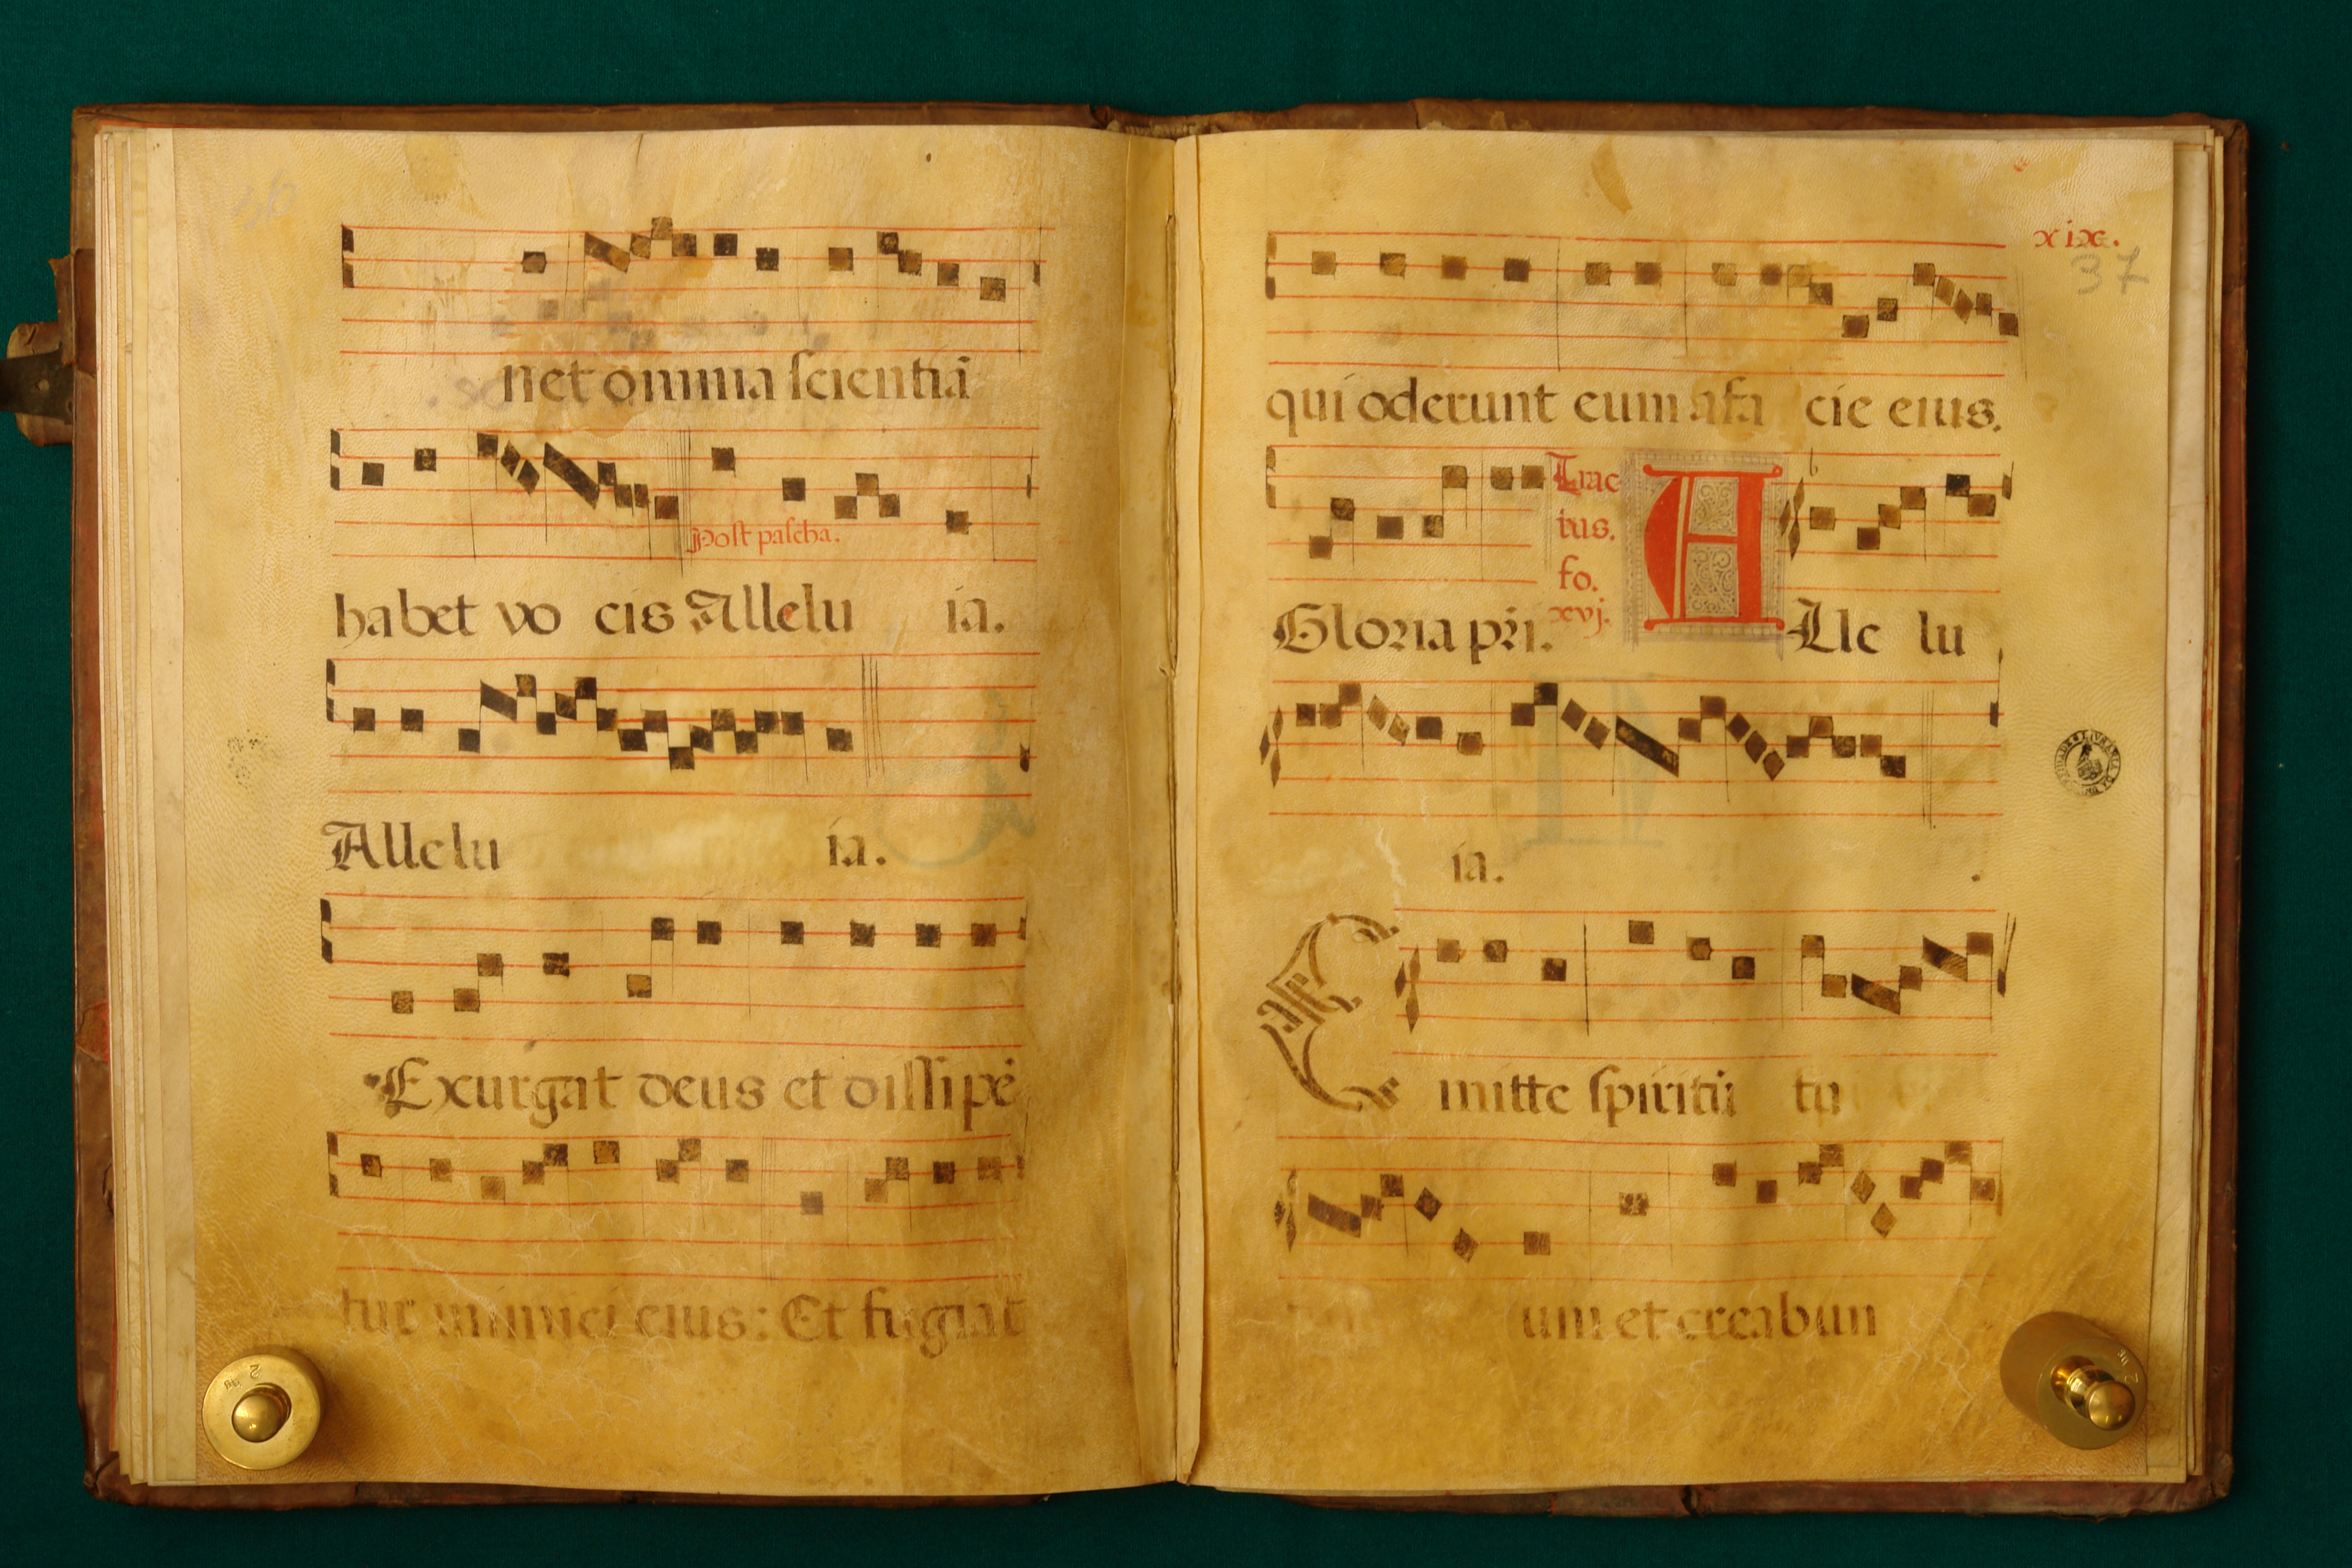 36
net omnia scientiā
Post pascha.
habet vo cis Allelu ia.
Allelu ia.
Exurgat deus et dissipē
tur inimici eius: Et fugiat
xix.
37
qui oderunt eum afa cie eius.
Trac
tus.
fo.
xvj.
Gloria pr̄i. A Lle lu
ia.
E mitte spiritū tu
um et creabun